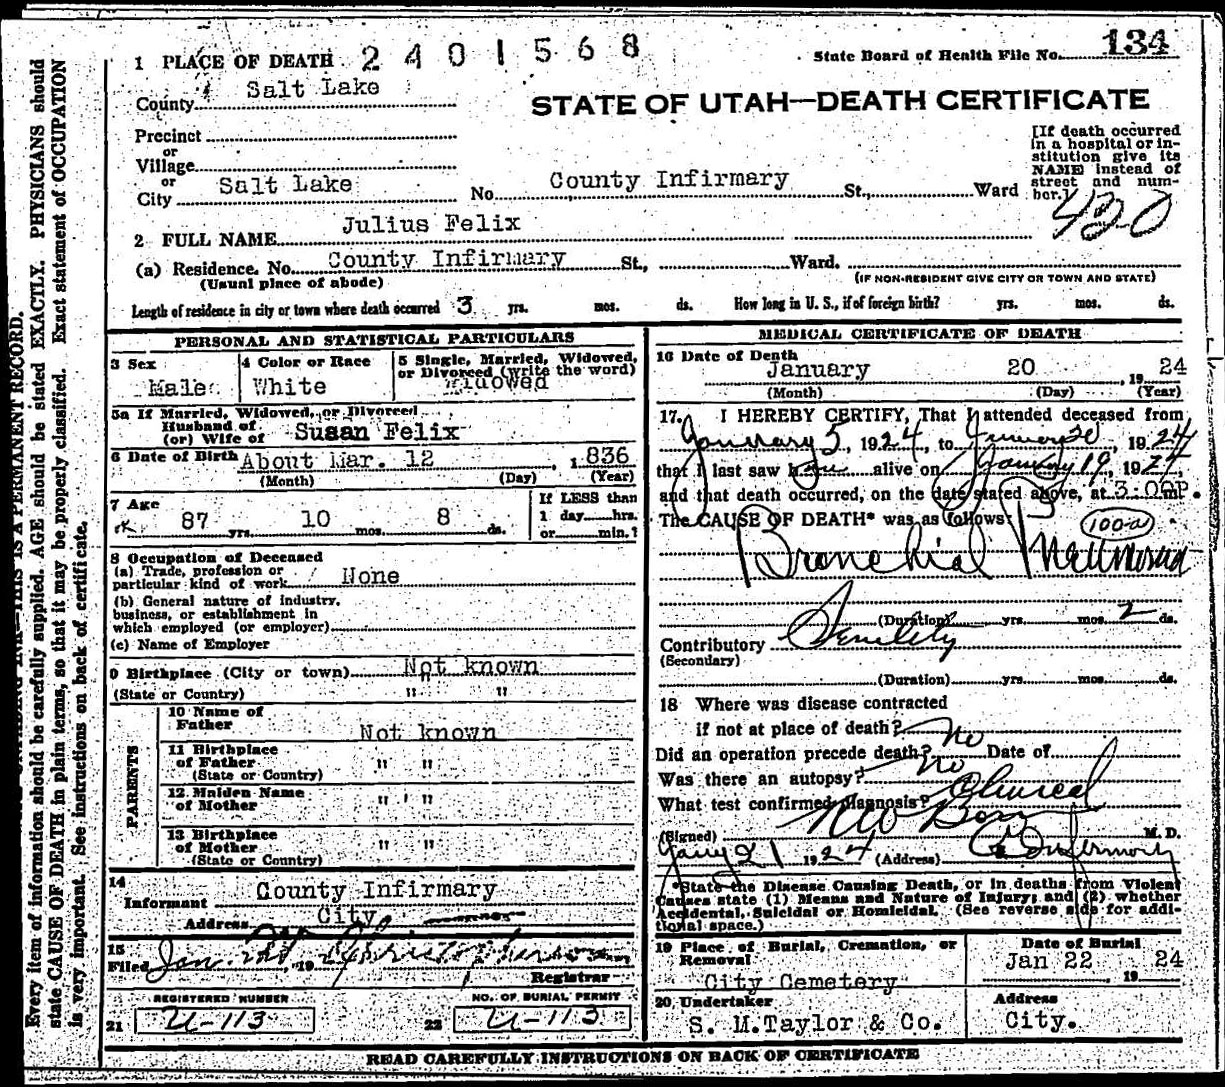 1 PLACE OF DEATH 2401568
State Board of Health File No. 134
County Salt Lake
STATE OF UTAH—DEATH CERTIFICATE
Precinct
or
Village
or
City Salt Lake No. County Infirmary St., Ward
[If death occurred
in a hospital or in-
stitution give its
NAME instead of
street and num-
ber.]
420
2 FULL NAME Julius Felix
(a) Residence. No. County Infirmary St., Ward.
(Usual place of abode) (IF NON-RESIDENT GIVE CITY OR TOWN AND STATE)
Length of residence in city or town where death occurred 3 yrs. mos. ds. How long in U. S., if of foreign birth? yrs. mos. ds.
PERSONAL AND STATISTICAL PARTICULARS
3 Sex 4 Color or Race 5 Single, Married, Widowed,
or Divorced (write the word)
Male White Widowed
5a If Married, Widowed, or Divorced
Husband of
(or) Wife of Susan Felix
6 Date of Birth About Mar. 12, 1836
(Month) (Day) (Year)
7 Age If LESS than
87 yrs. 10 mos. 8 ds. 1 day hrs.
or min.?
8 Occupation of Deceased
(a) Trade, profession or
particular kind of work None
(b) General nature of industry,
business, or establishment in
which employed (or employer)
(c) Name of Employer
9 Birthplace (City or town) Not known
(State or Country) " "
PARENTS
10 Name of
Father Not known
11 Birthplace
of Father " "
(State or Country)
12 Maiden Name
of Mother " ' "
13 Birthplace
of Mother " "
(State or Country)
14
Informant County Infirmary
Address City
15
Filed Jan. 19
Registrar
REGISTERED NUMBER NO. OF BURIAL PERMIT
21 U-113 22 U-113
MEDICAL CERTIFICATE OF DEATH
16 Date of Death
January 20, 1924
(Month) (Day) (Year)
17. I HEREBY CERTIFY, That I attended deceased from
January 5, 1924, to January 20, 1924
that I last saw him alive on January 19, 1924,
and that death occurred, on the date stated above, at 3:00P m.
The CAUSE OF DEATH* was as follows: 100-a
Bronchial Pneumonia
(Duration) yrs. mos. 2 ds.
Contributory Senility
(Secondary)
(Duration) yrs. mos. ds.
18 Where was disease contracted
if not at place of death? No
Did an operation precede death? No Date of
Was there an autopsy?
What test confirmed diagnosis? Clinical
(Signed) M. D.
Jany 21 1924 (Address) Co Infirmary
*State the Disease Causing Death, or in deaths from Violent
Causes state (1) Means and Nature of Injury; and (2) whether
Accidental, Suicidal or Homicidal. (See reverse side for addi-
tional space.)
19 Place of Burial, Cremation, or Date of Burial
Removal Jan 22 1924
City Cemetery
20 Undertaker Address
S. M. Taylor & Co. City.
READ CAREFULLY INSTRUCTIONS ON BACK OF CERTIFICATE
THIS IS A PERMANENT RECORD.
Every item of information should be carefully supplied. AGE should be stated EXACTLY. PHYSICIANS should
state CAUSE OF DEATH in plain terms, so that it may be properly classified. Exact statement of OCCUPATION
is very important. See instructions on back of certificate.